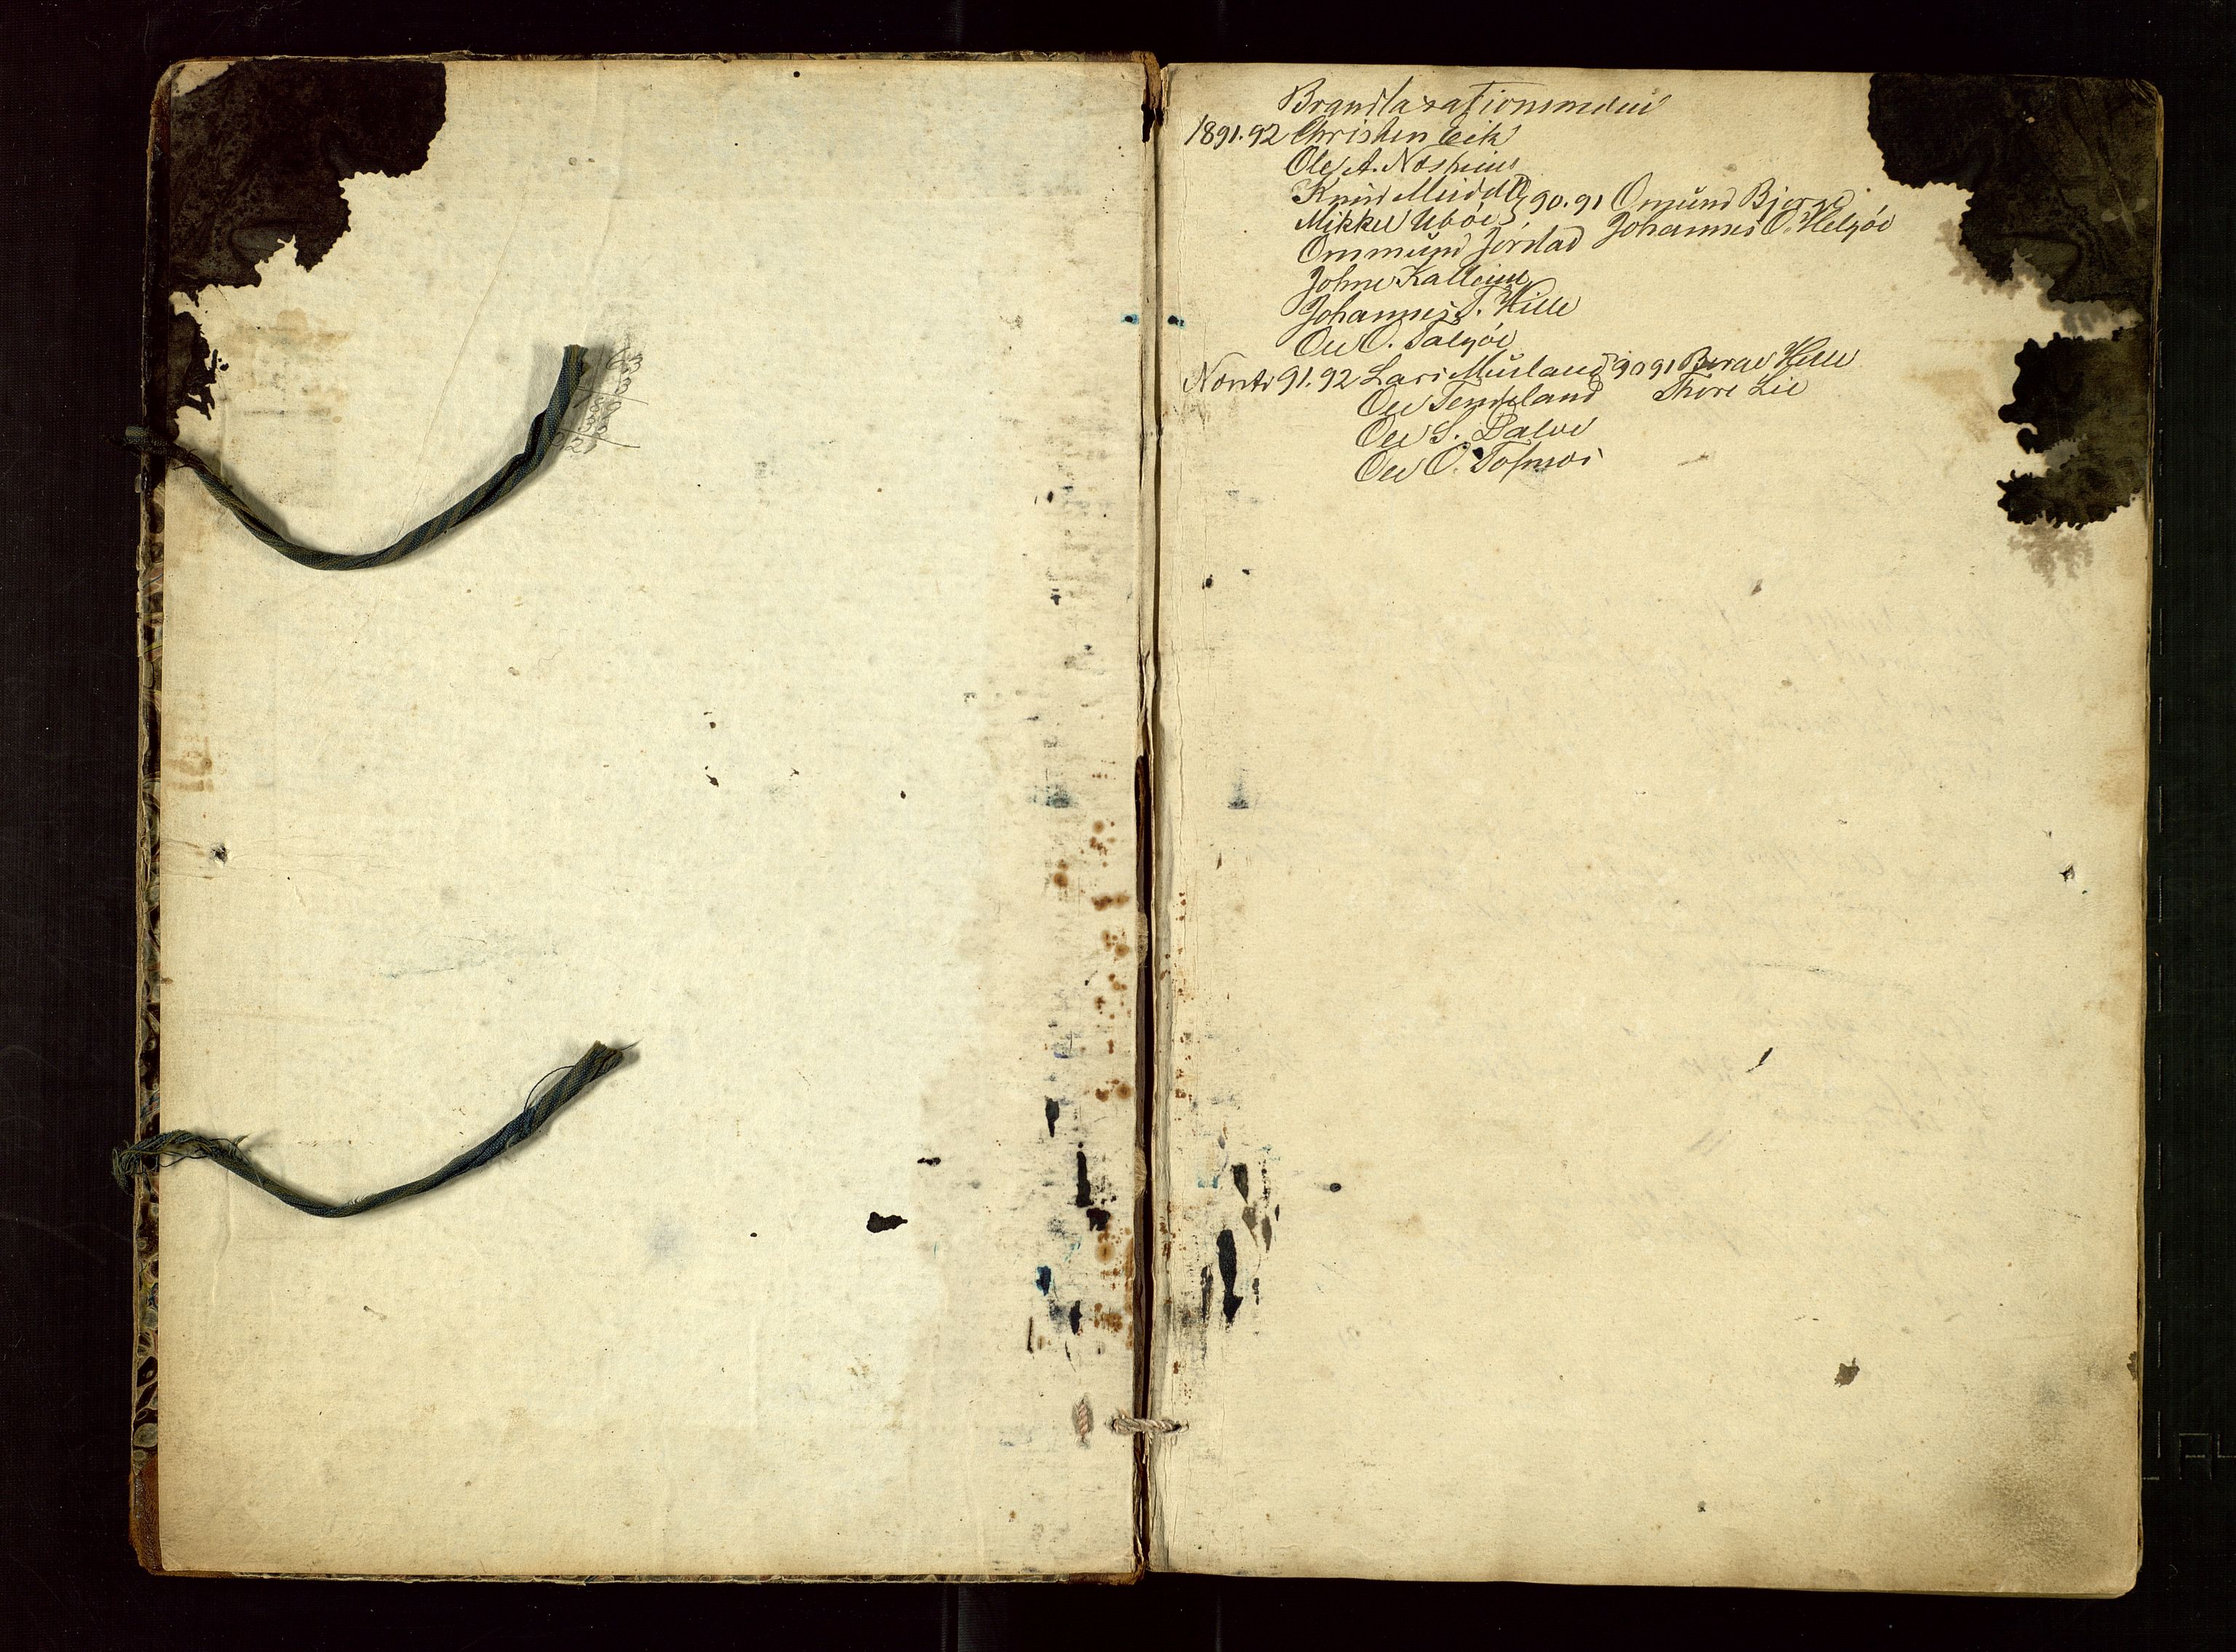 Brandtaxationsmænd
1891.92 Christen Eik
Ole A. Nosheim
Knud Meidell } 90.91 Omund Bjerge
Mikkel Ubøe Johannes O. Helgøe
Ommund Jørstad
Johne Kalleim
Johannes T. Hille
Ole O. Talgøe
91.92 Lars Musland 90 91 Helle
Ole Tengsland Thore Lie
Ole S.
Ole O.